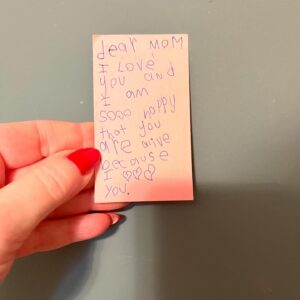 dear MOM
I LOVE
you and
I am
sooo happy
that you
are alive
because
I ♡♡♡
you.